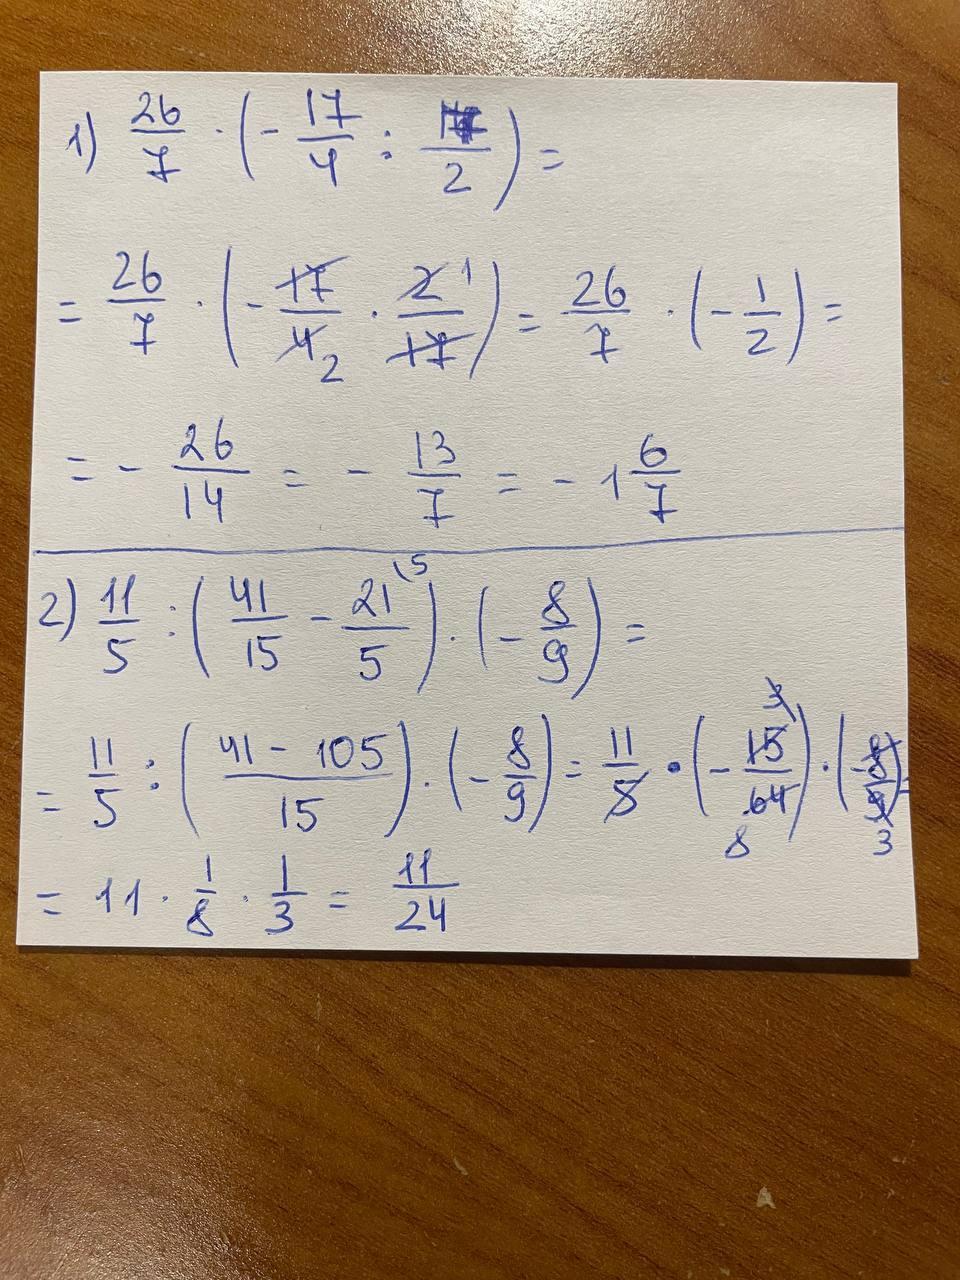 1) 26/7 · (- 17/4 : 17/2) =
= 26/7 · (- 17/4 2 · 2 1/17) = 26/7 · (- 1/2) =
= - 26/14 = - 13/7 = - 1 6/7
2) 11/5 : (41/15 - 21 \5/5) · (- 8/9) =
= 11/5 : (41 - 105/15) · (- 8/9) = 11/5 · (- 15 3/64 8) · (- 8/9 3) =
= 11 · 1/8 · 1/3 = 11/24